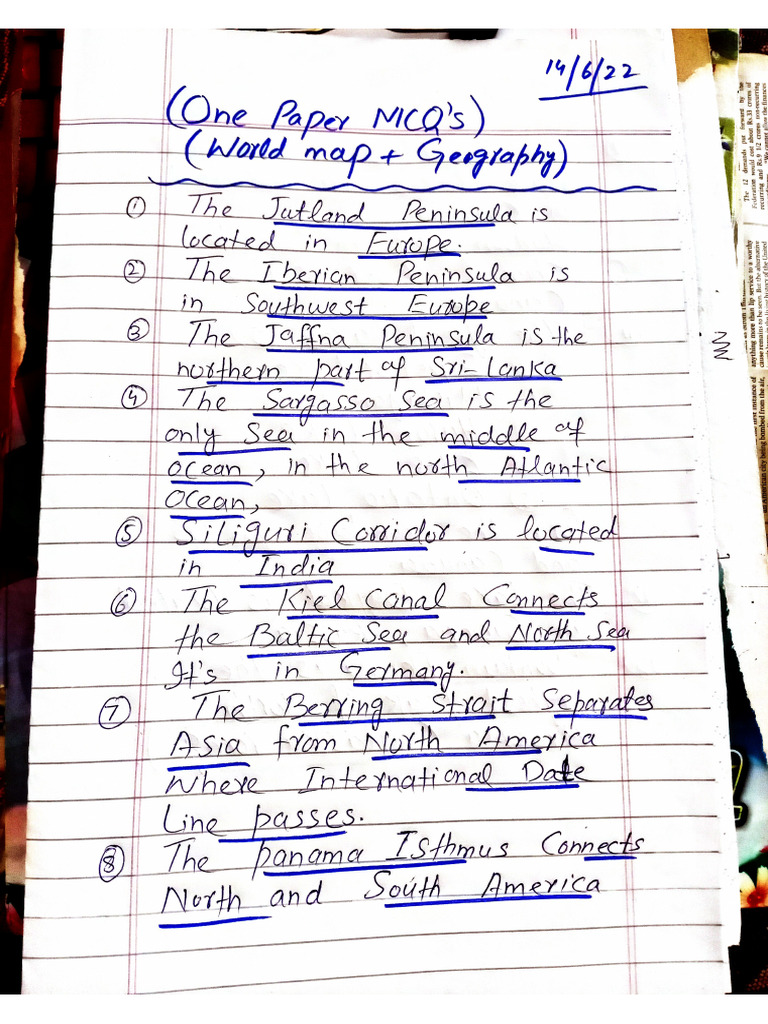 14/6/22
(One Paper MCQ's)
(World map + Geography)
① The Jutland Peninsula is
located in Europe.
② The Iberian Peninsula is
in Southwest Europe
③ The Jaffna Peninsula is the
northern part of Sri-Lanka
④ The Sargasso Sea is the
only Sea in the middle of
ocean, in the north Atlantic
Ocean,
⑤ Siliguri Corridor is located
in India
⑥ The Kiel Canal Connects
the Baltic Sea and North Sea
It's in Germany.
⑦ The Berring Strait Separates
Asia from North America
Where International Date
Line passes.
⑧ The Panama Isthmus Connects
North and South America